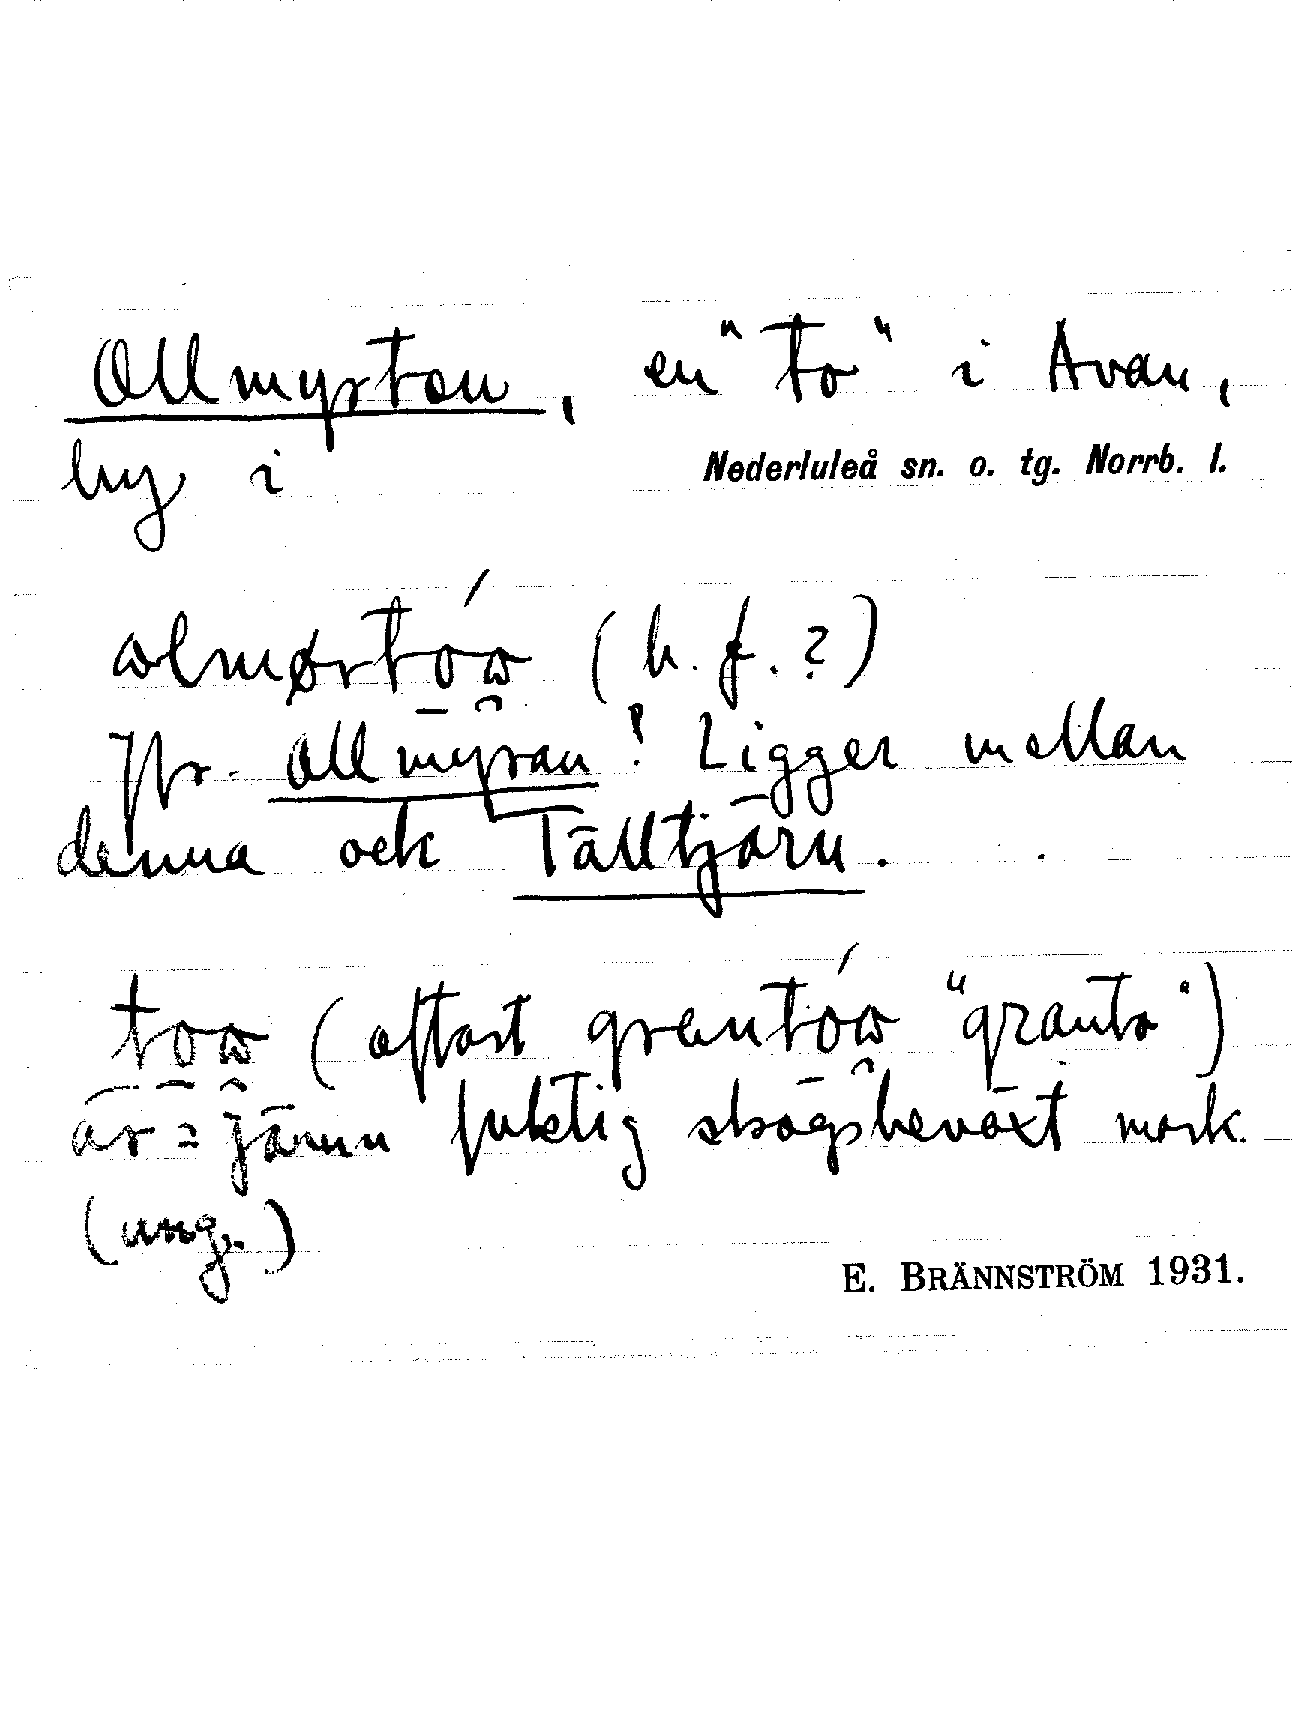 Ollmyrton, en "to" i Avan,
by i Nederluleå sn. o. tg. Norrb. l.
ωlmørtóω (b.f.?)
Jfr. Ollmyran! Ligger mellan
denna och Tälltjärn.
toω (oftast grantóω "granto")
är = jämn fuktig skogsbeväxt mark.
(ung.)
E. BRÄNNSTRÖM 1931.